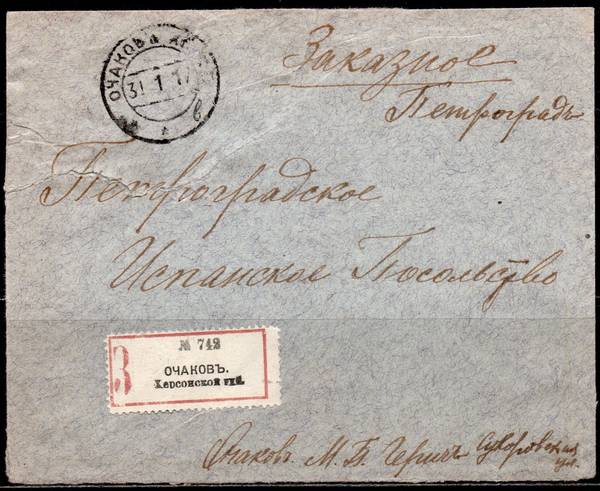 ОЧАКОВЪ
31 1 17
в
Заказное
Петроградъ
Петроградское
Испанское Посольство
№ 742
З
ОЧАКОВЪ.
Херсонской губ.
Очаков М. Б. Герич Суворовская
ул.